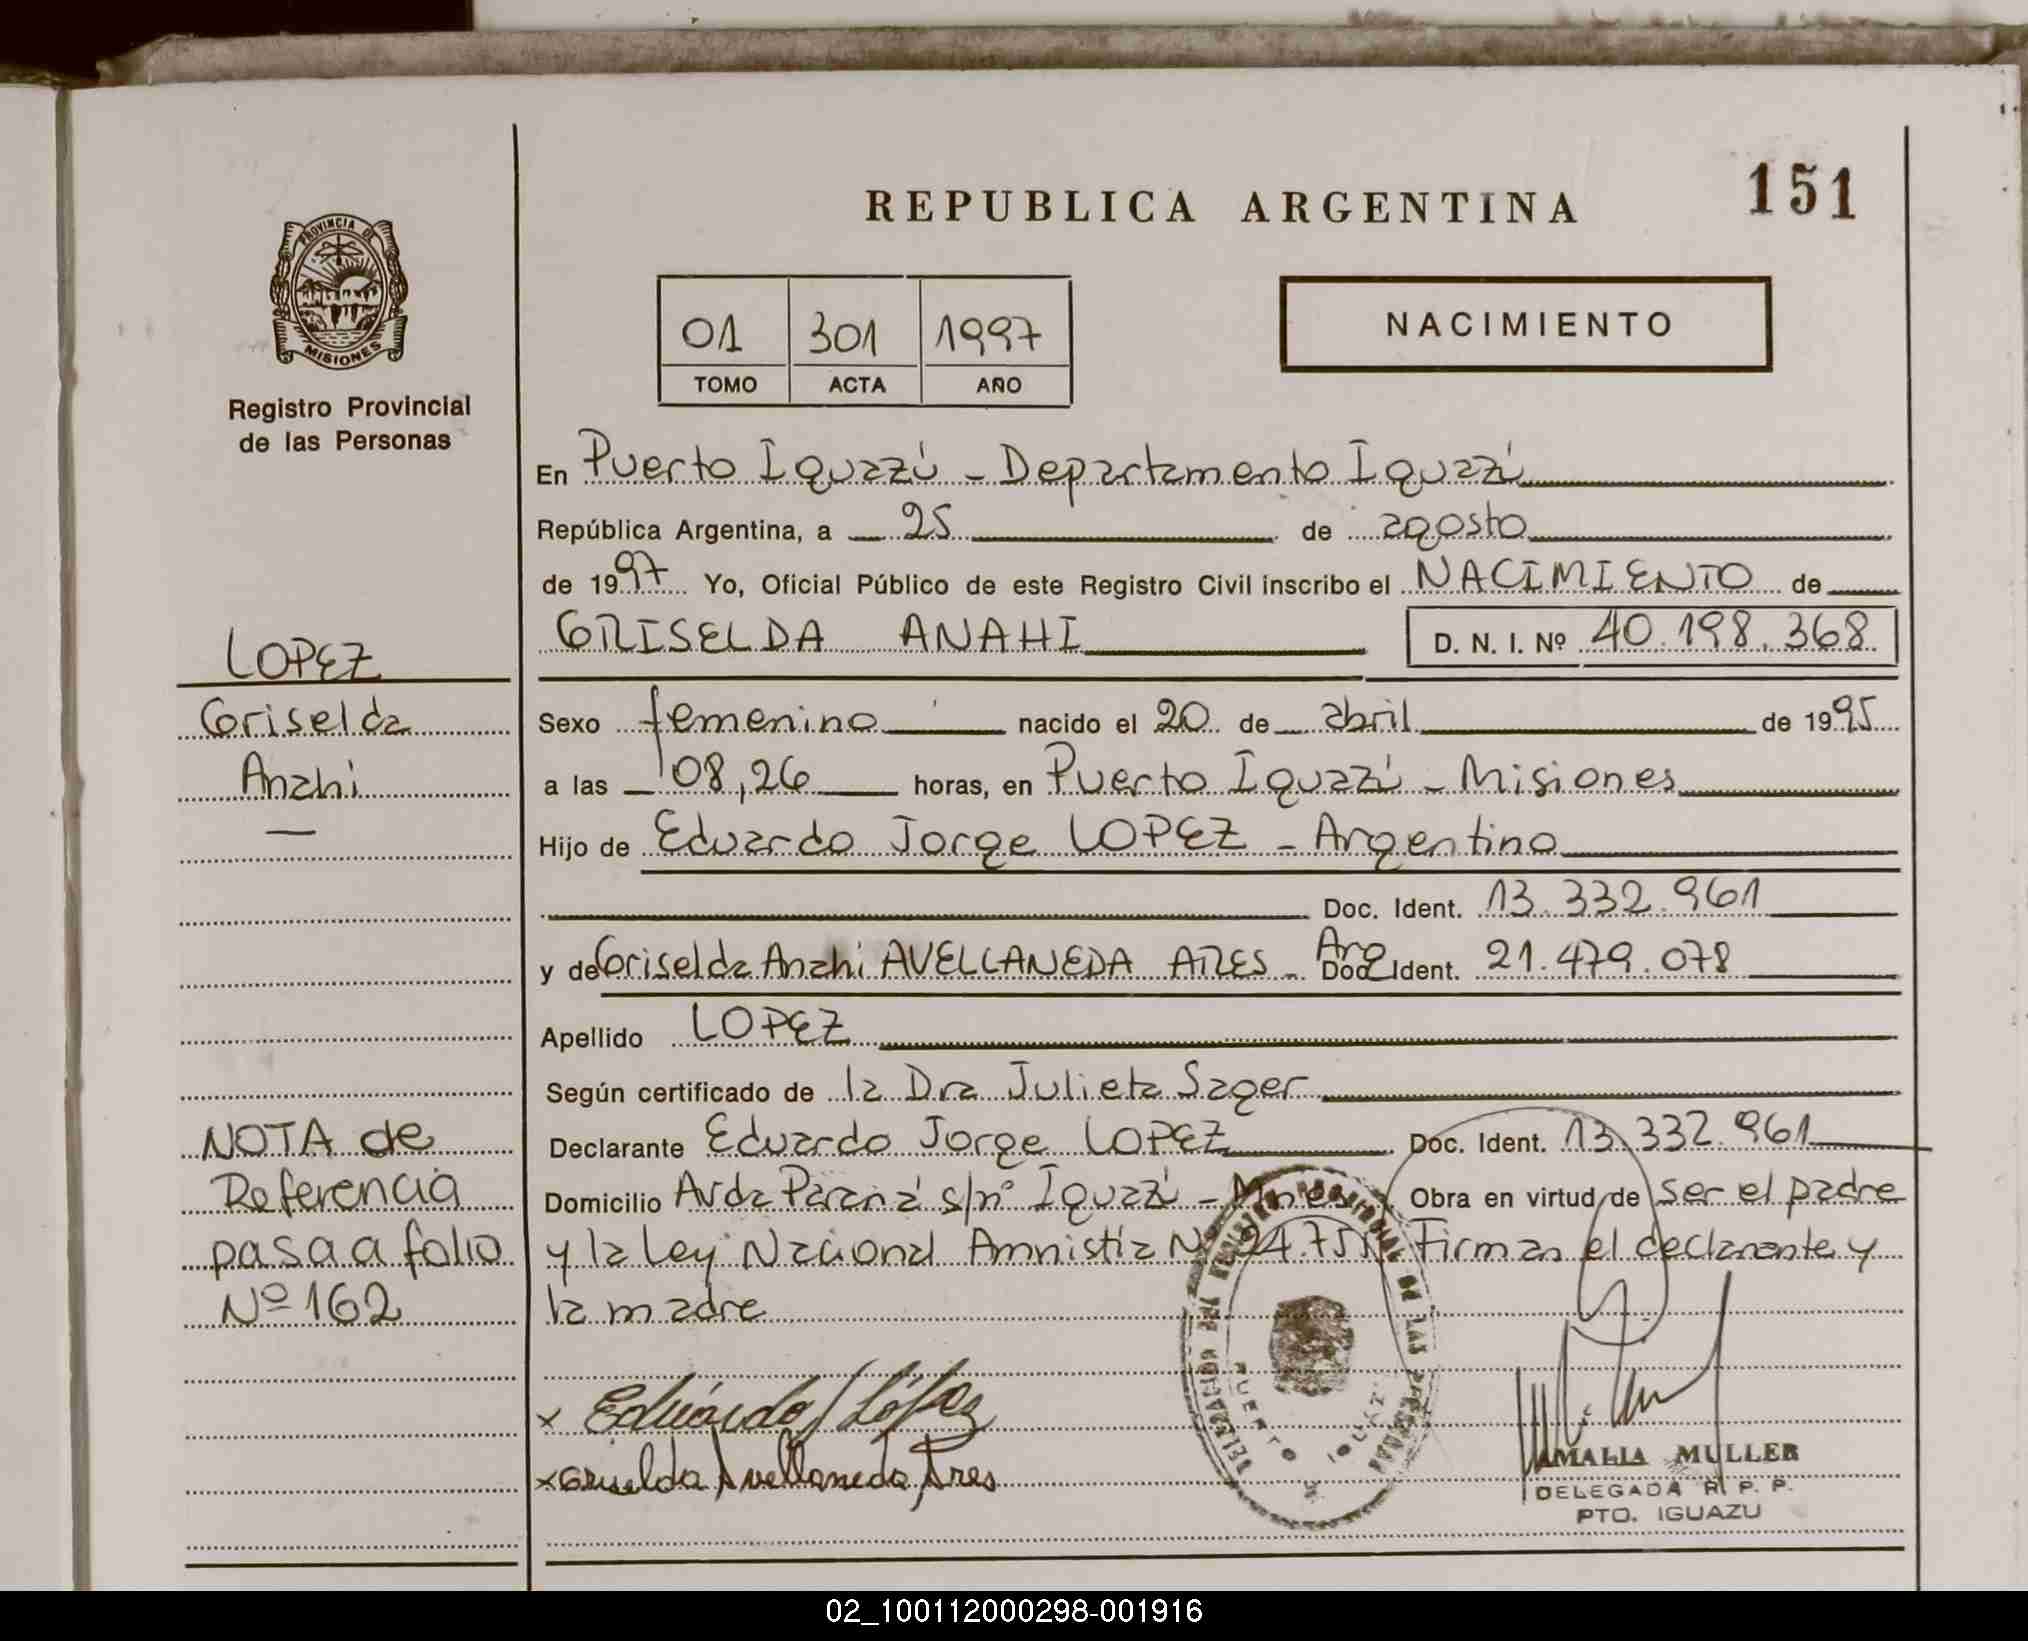 REPUBLICA ARGENTINA
151
PROVINCIA DE
MISIONES
Registro Provincial
de las Personas
01 301 1997
TOMO ACTA AÑO
NACIMIENTO
En Puerto Iguazú - Departamento Iguazú
República Argentina, a 25 de agosto
de 1997 Yo, Oficial Público de este Registro Civil inscribo el NACIMIENTO de
GRISELDA ANAHI D. N. I. Nº 40.198.368
LOPEZ
Griselda
Anahi
Sexo femenino nacido el 20 de abril de 1995
a las 08,26 horas, en Puerto Iguazú - Misiones
Hijo de Eduardo Jorge LOPEZ - Argentino
Doc. Ident. 13.332.961
y de Griselda Anahi AVELLANEDA ARES - Arg Doc. Ident. 21.479.078
Apellido LOPEZ
Según certificado de la Dra Julieta Sager
Declarante Eduardo Jorge LOPEZ Doc. Ident. 13.332.961
Domicilio Avda Paraná s/nº Iguazú - Mnes Obra en virtud de ser el padre
y la Ley Nacional Amnistía Nº 24.755 Firman el declarante y
la madre
NOTA de
Referencia
pasa a folio
Nº 162
x Eduardo J López
x Griselda Avellaneda Ares
PUERTO IGUAZU
AMALIA MULLER
DELEGADA R. P. P.
PTO. IGUAZU
02_100112000298-001916